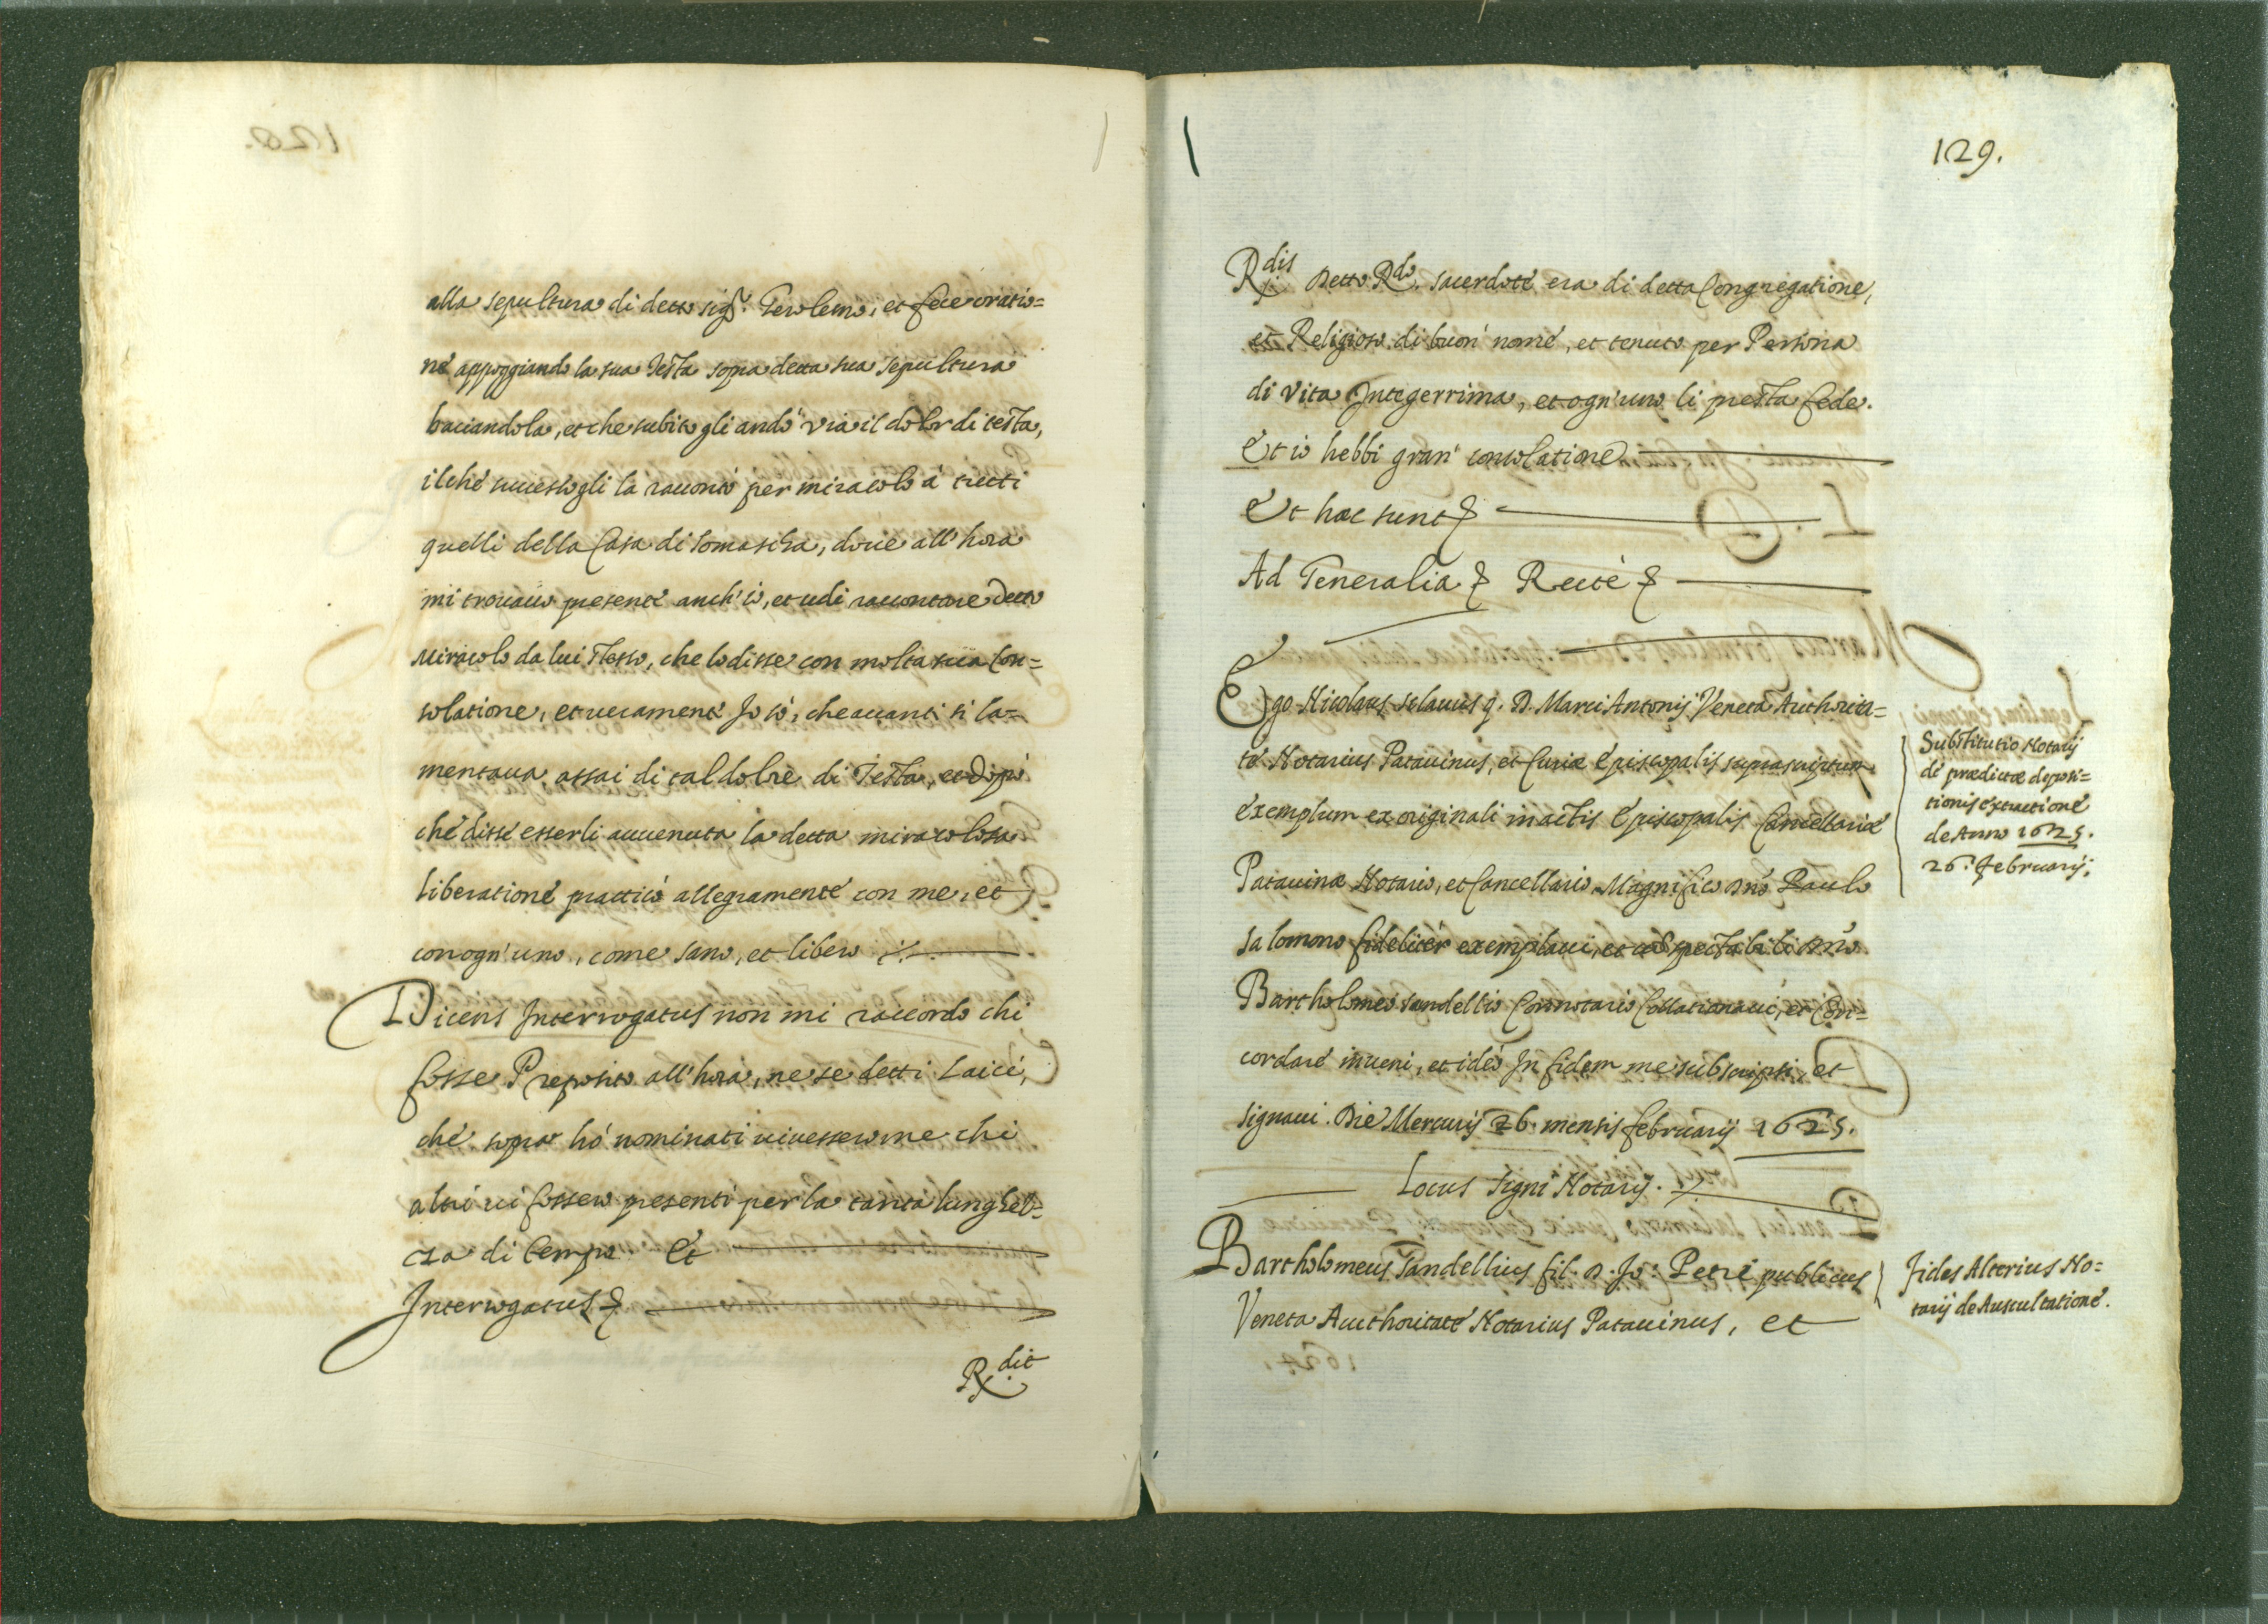 alla sepultura di detto sig.r Gerolemo, et fece oratio=
ne appoggiando la sua Testa sopra detta sua sepultura
baciandola, et che subito gli andò via il dolor di testa,
il che successogli la raccontò per miracolo à tutti
quelli della Casa di Somascha, doue all'hora
mi trouauo presente anch'io, et udi raccontare detto
Miracolo da lui stesso, che lo disse con molta sua Con=
solatione, et ueramente Io sò, che auanti si la=
mentaua assai di tal dolore di Testa, et dipoi
che disse esserli auuenuta la detta miracolosa
liberatione praticò allegramente con me, et
con ogn'uno, come sano, et libero
Dicens Interrogatus non mi raccordo chi
fosse Preposito all'hora, ne se detti Laici,
che sopra hò nominati uiuessero ne chi
altri ui fossero presenti per la tanta longhez=
za di tempo. Et
Interrogatus
R.dit
129.
R.dit Detto R.do sacerdote era di detta Congregatione,
et Religioso di buon nome, et tenuto per Persona
di Vita Integerrima, et ogn'uno li presta fede.
Et io hebbi gran consolatione
Et hæc sunt
Ad Generalia Rectè
Ego Nicolaus Sclauus q. D. Marci Antonij Veneta Authorita=
te Notarius Patauinus, et Curiæ Episcopalis suprascriptum
exemplum ex originali in actis Episcopalis Cancellariæ
Patauinæ Notario, et Cancellario Magnifico Dno Paulo
Salomono fideliter exemplaui, et cum spectabili Dno
Bartholomeo Sandellio Connotario Collationaui, et Con=
cordare inueni, et ideò In fidem me subscripsi, et
signaui. Die Mercurij 26. mensis februarij 1625.
Locus signi Notarij.
Bartholomeus Sandellius fil. D. Jo: Petri publicus
Veneta Aucthoritate Notarius Patauinus, et
Substitutio Notarij
de prædictæ deposi=
tionis extractione
de Anno 1625.
26. Februarij.
Fides Alterius No=
tarij de Auscultatione.